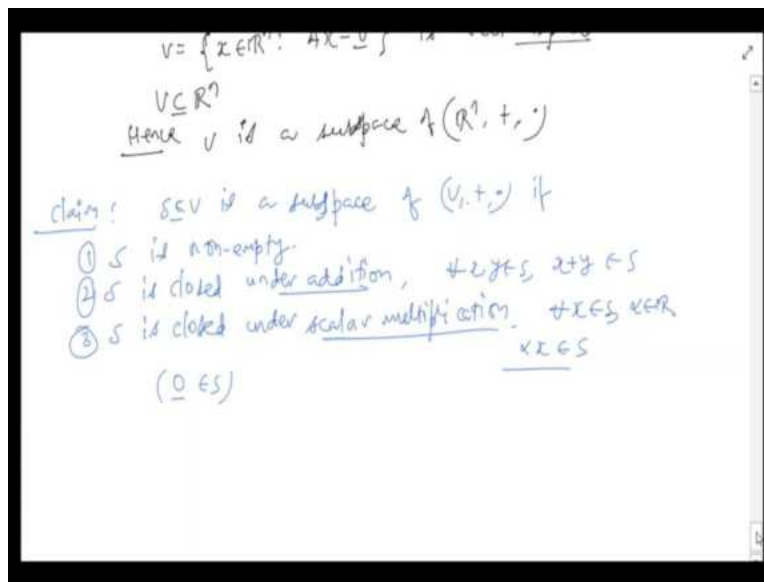 V = {x ∈ ℝⁿ: Ax = 0} is
V ⊆ ℝⁿ
Hence V is a subspace of (ℝⁿ, +, ·)
Claim: S ⊆ V is a subspace of (V, +, ·) if
① S is non-empty.
② S is closed under addition, ∀ x, y ∈ S, x+y ∈ S
③ S is closed under scalar multiplication. ∀ x ∈ S, α ∈ ℝ
αx ∈ S
(0 ∈ S)